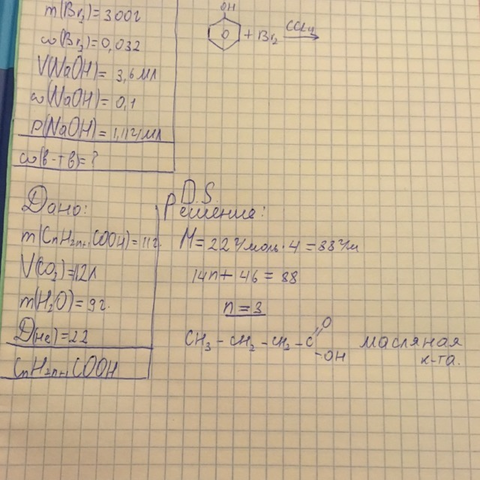 m(Br₂)=300г
ω(Br₂)=0,032
V(NaOH)=3,6мл
ω(NaOH)=0,1
ρ(NaOH)=1,11г/мл
ω(в-тв)=?
OH
+ Br₂ CCl₄ →
Дано:
m(CnH2n+1COOH)=11г.
V(CO₂)=12л
m(H₂O)=9г.
D(He)=22
CnH2n+1COOH
D.S
Решение:
M=22г/моль·4=88г/м
14n+46=88
n=3
CH₃-CH₂-CH₂-C
O
-OH
масляная
к-та.